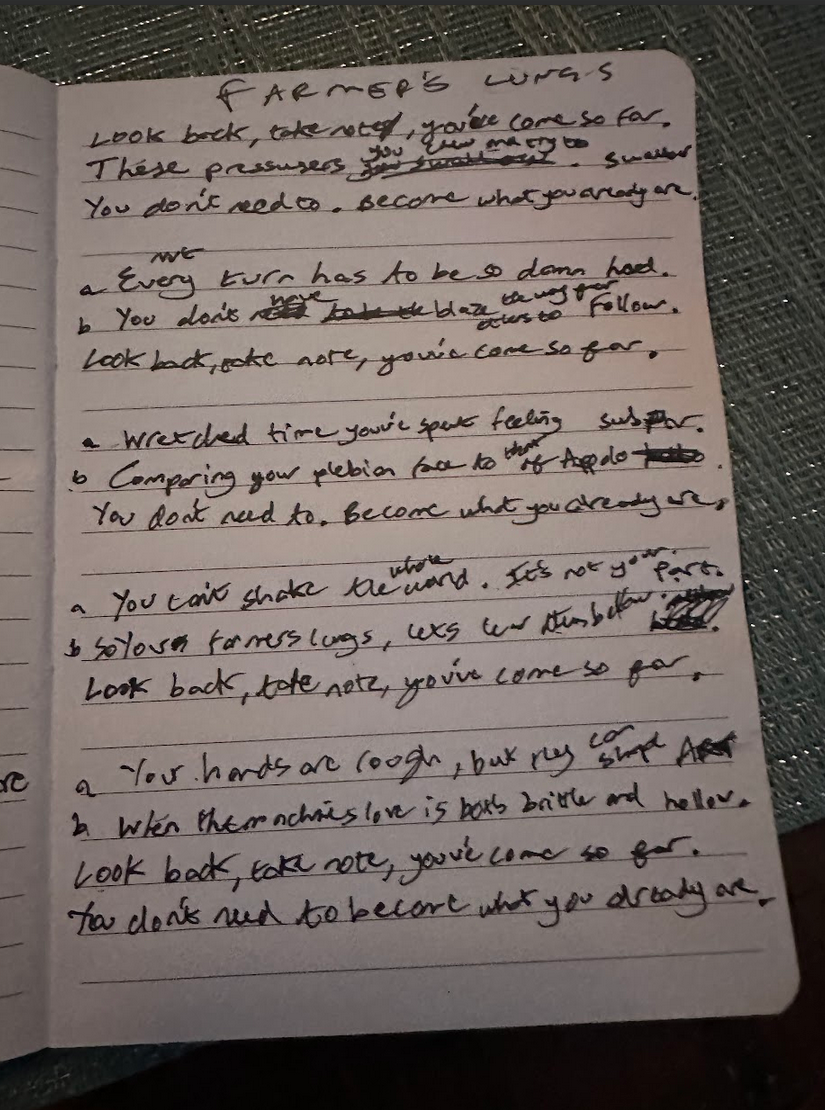 FARMER'S LUNGS
Look back, take note, you've come so far.
These pressusers you chew and try to swallow.
You don't need to. Become what you already are.
not
a Every turn has to be so damn hard.
b You don't have blaze the way for others to Follow.
Look back, take note, you've come so far.
a Wretched time you've spent feeling subpar.
b Comparing your plebian face to that of Apollo.
You don't need to. Become what you already are.
a You can't shake the whole world. It's not your part.
b So Your farmers lungs, let's bellow.
Look back, take note, you've come so far.
a Your hands are rough, but they can shape Art
b When the machines love is both brittle and hollow.
Look back, take note, you've come so far.
You don't need to become what you already are.
re